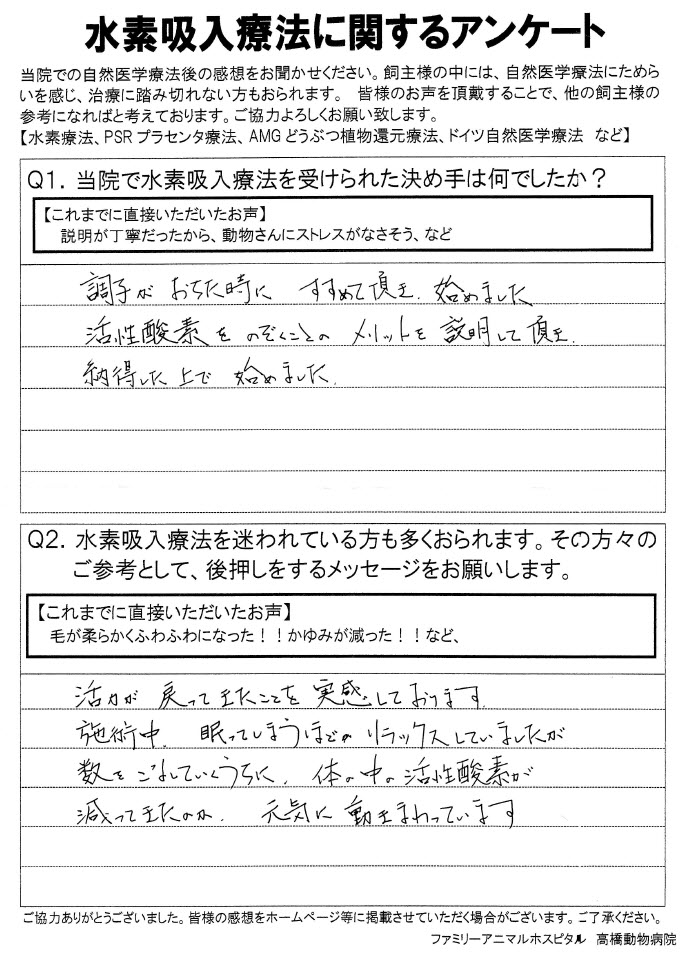 水素吸入療法に関するアンケート
当院での自然医学療法後の感想をお聞かせください。飼主様の中には、自然医学療法にためら
いを感じ、治療に踏み切れない方もおられます。 皆様のお声を頂戴することで、他の飼主様の
参考になればと考えております。ご協力よろしくお願い致します。
【水素療法、PSRプラセンタ療法、AMGどうぶつ植物還元療法、ドイツ自然医学療法 など】
Q1. 当院で水素吸入療法を受けられた決め手は何でしたか？
【これまでに直接いただいたお声】
説明が丁寧だったから、動物さんにストレスがなさそう、など
調子が おちた時に すすめて頂き、始めました
活性酸素を のぞくことの メリットを 説明して頂き、
納得した上で 始めました。
Q2. 水素吸入療法を迷われている方も多くおられます。その方々の
ご参考として、後押しをするメッセージをお願いします。
【これまでに直接いただいたお声】
毛が柔らかくふわふわになった！！かゆみが減った！！など、
活力が 戻ってきたことを 実感しております。
施術中、 眠ってしまうほどの リラックスしていましたが
数を こなしていくうちに、 体の中の活性酸素が
減ってきたのか、 元気に 動きまわっています
ご協力ありがとうございました。皆様の感想をホームページ等に掲載させていただく場合がございます。ご了承ください。
ファミリーアニマルホスピタル 高橋動物病院